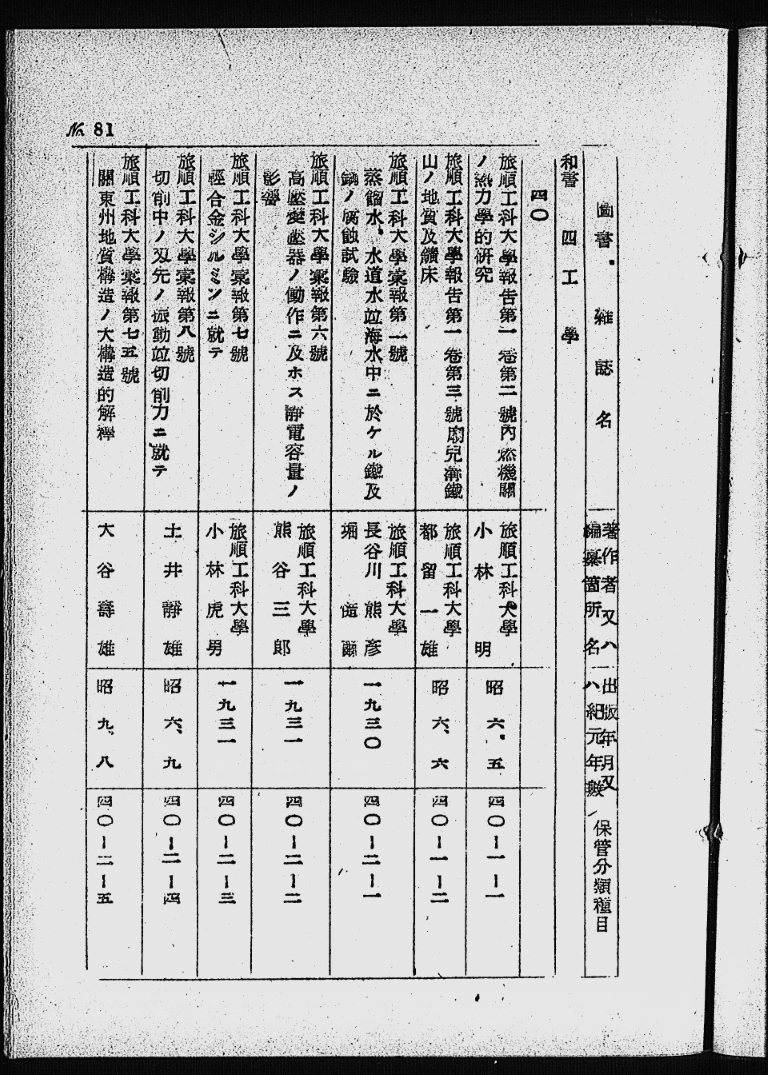 No. 81
圖書・雜誌名
著作者又ハ
編纂箇所名
出版年月又
ハ紀元年數
保管分類種目
和書 四 工學
四〇
旅順工科大學報告第一卷第二號內燃機關
ノ熱力學的硏究
旅順工科大學
小林明
昭六、五
四〇－一－一
旅順工科大學報告第一卷第三號廟兒溝鐵
山ノ地質及鑛床
旅順工科大學
都留一雄
昭六、六
四〇－一－二
旅順工科大學彙報第一號
蒸餾水、水道水竝海水中ニ於ケル鐵及
鋼ノ腐蝕試驗
旅順工科大學
長谷川熊彥
堀 爾
一九三〇
四〇－二－一
旅順工科大學彙報第六號
高壓變壓器ノ働作ニ及ホス靜電容量ノ
影響
旅順工科大學
熊谷三郎
一九三一
四〇－二－二
旅順工科大學彙報第七號
輕合金シルミンニ就テ
旅順工科大學
小林虎男
一九三一
四〇－二－三
旅順工科大學彙報第八號
切削中ノ刄先ノ振動竝切削力ニ就テ
土井靜雄
昭六、九
四〇－二－四
旅順工科大學彙報第七五號
關東州地質構造ノ大構造的解釋
大谷壽雄
昭九、八
四〇－二－五